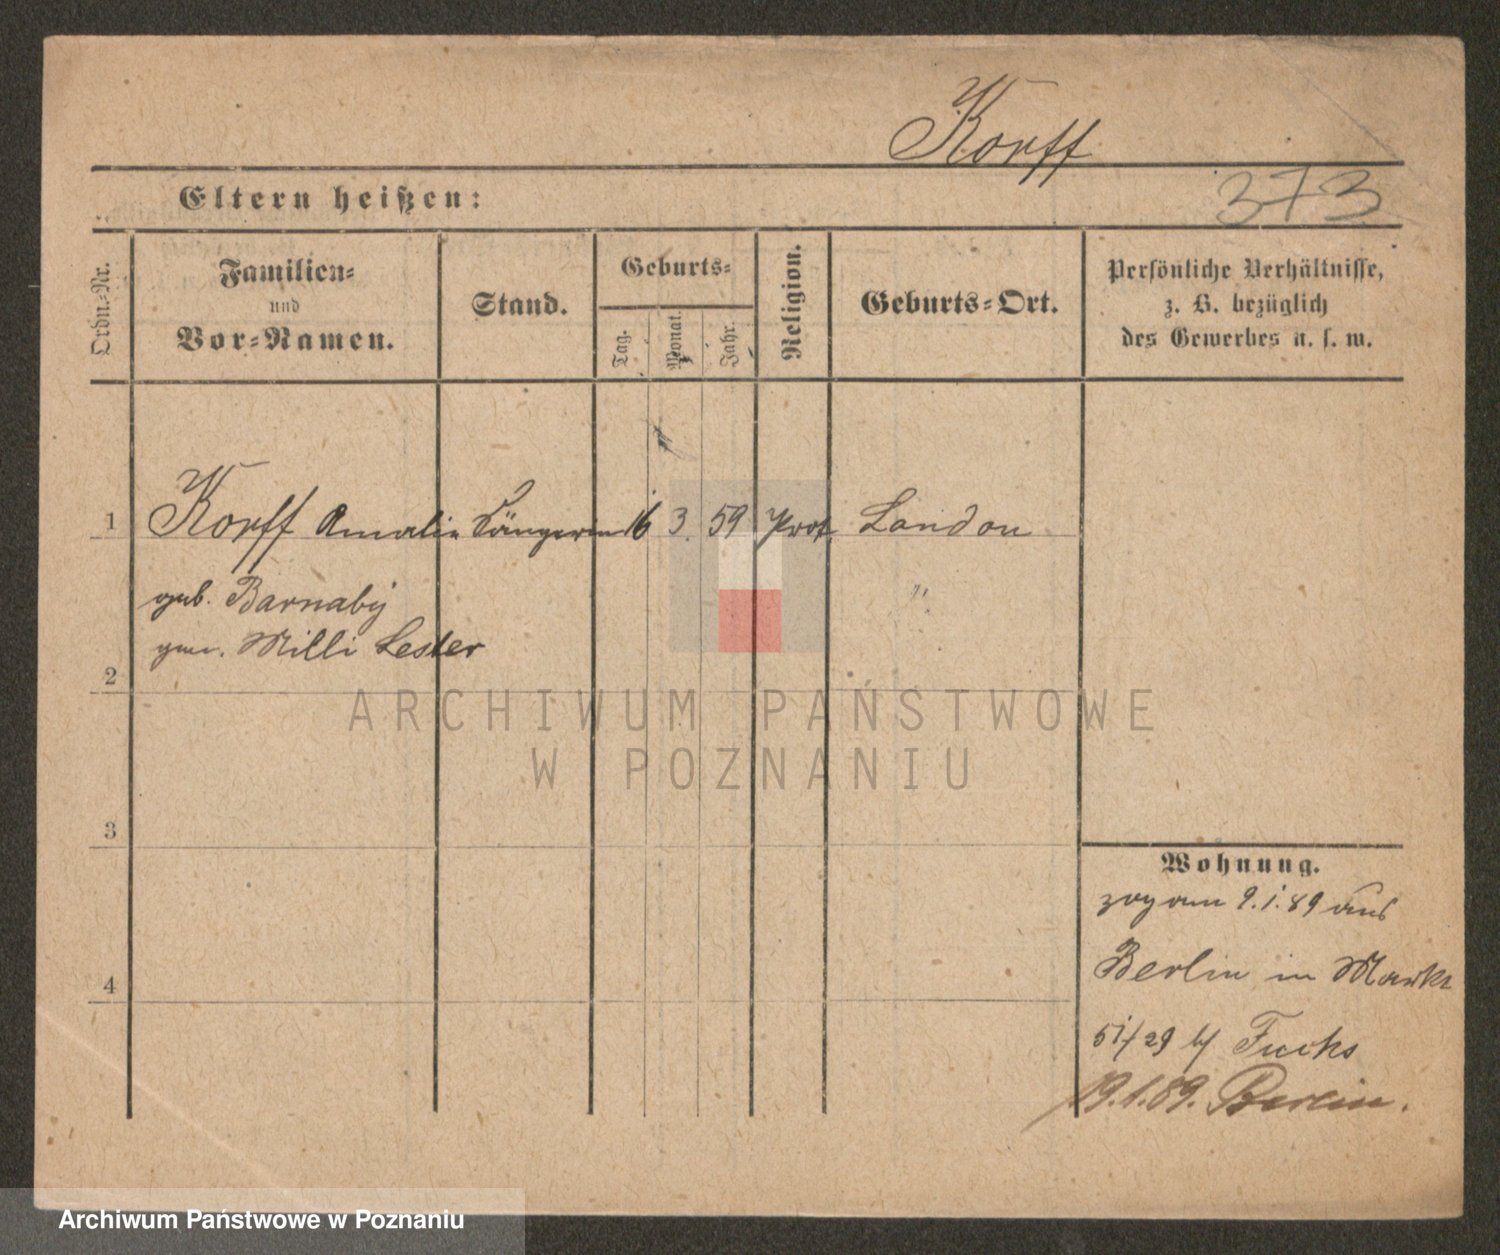 Korff
Eltern heißen:
373
Ordn.-Nr.
Familien-
und
Vor-Namen.
Stand.
Geburts-
Tag.
Monat.
Jahr.
Religion.
Geburts-Ort.
Persönliche Verhältnisse,
z. B. bezüglich
des Gewerbes u. s. w.
1 Korff Amalie Sängerin 16 3. 59 Prot. London
geb. Barnaby "
gen. Milli Lester
2
ARCHIWUM PAŃSTWOWE
W POZNANIU
3
Wohnung.
zog am 9.1.89 aus
4
Berlin in Markt
51/29 b/ Fuchs
19.1.89. Berlin.
Archiwum Państwowe w Poznaniu